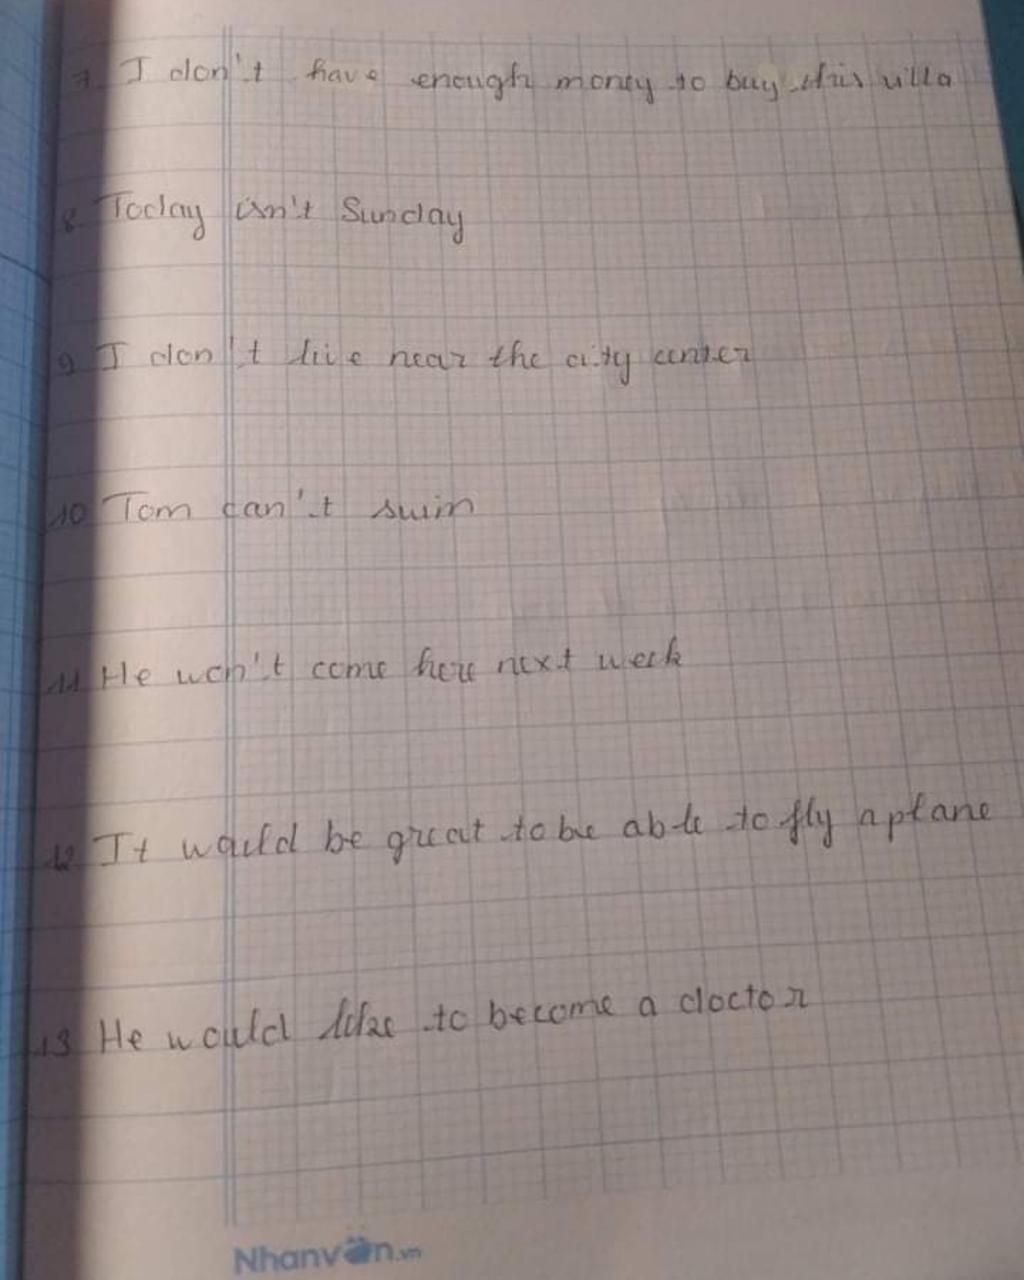 7. I don't have enough money to buy this villa
8. Today isn't Sunday
9 I don't live near the city center
10 Tom can't swim
11 He won't come here next week
12 It would be great to be able to fly a plane
13 He would like to become a doctor
Nhanvăn.vn